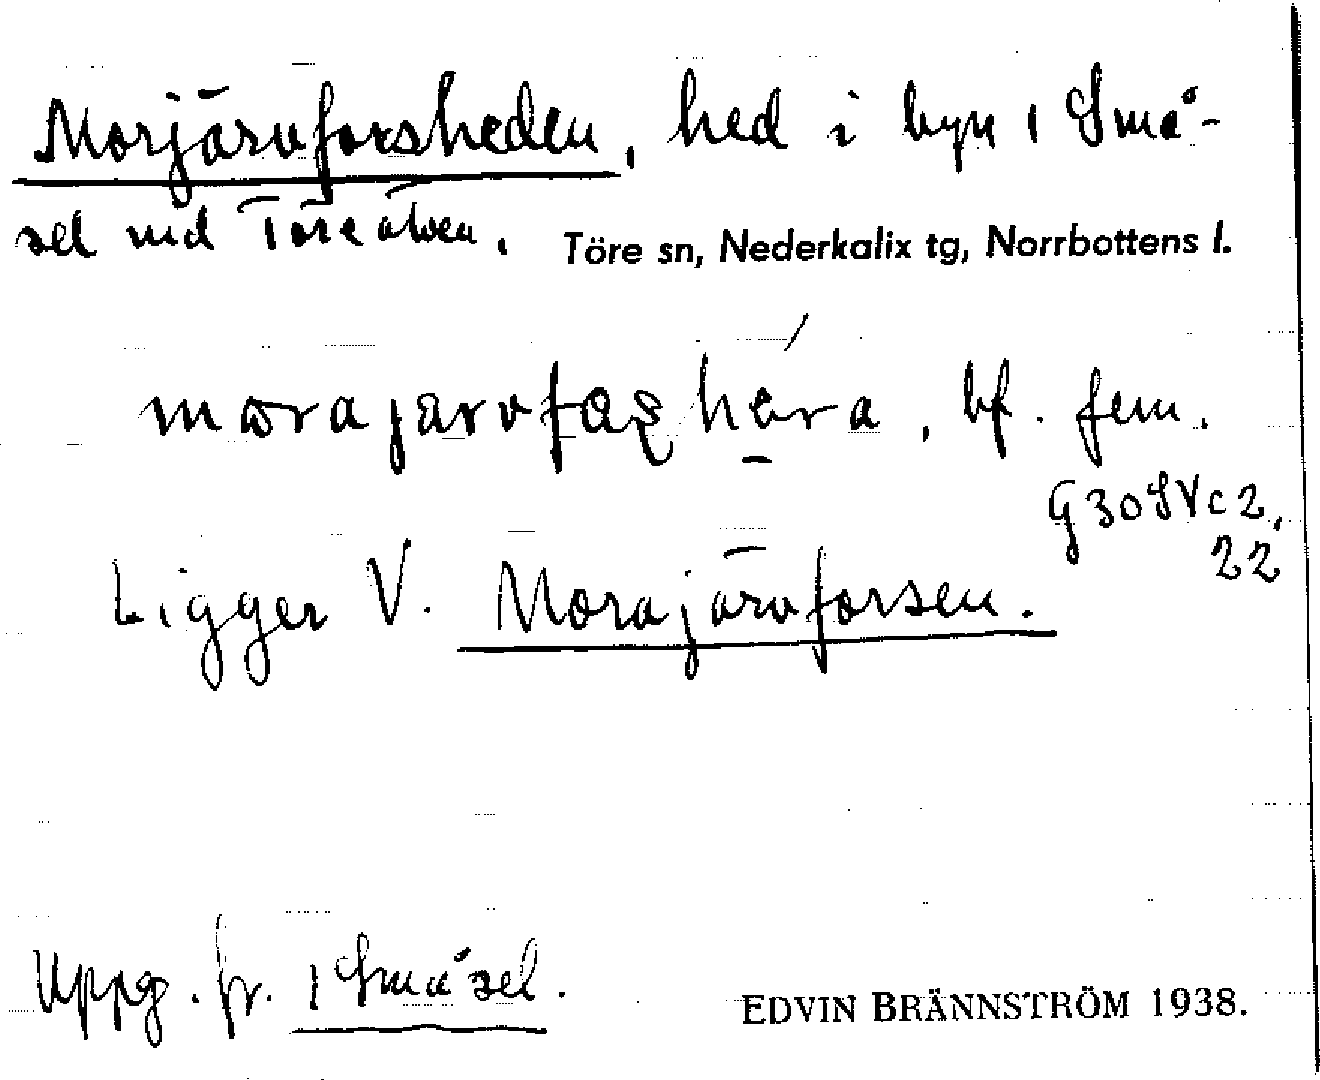 Morjärvforsheden, hed i byn 1 Små-
sel vid Töreälven. Töre sn, Nederkalix tg, Norrbottens l.
bf. fem.
G30SVc2,
22
Ligger V. Morajärvforsen.
Uppg. fr. 1 Småsel.
EDVIN BRÄNNSTRÖM 1938.